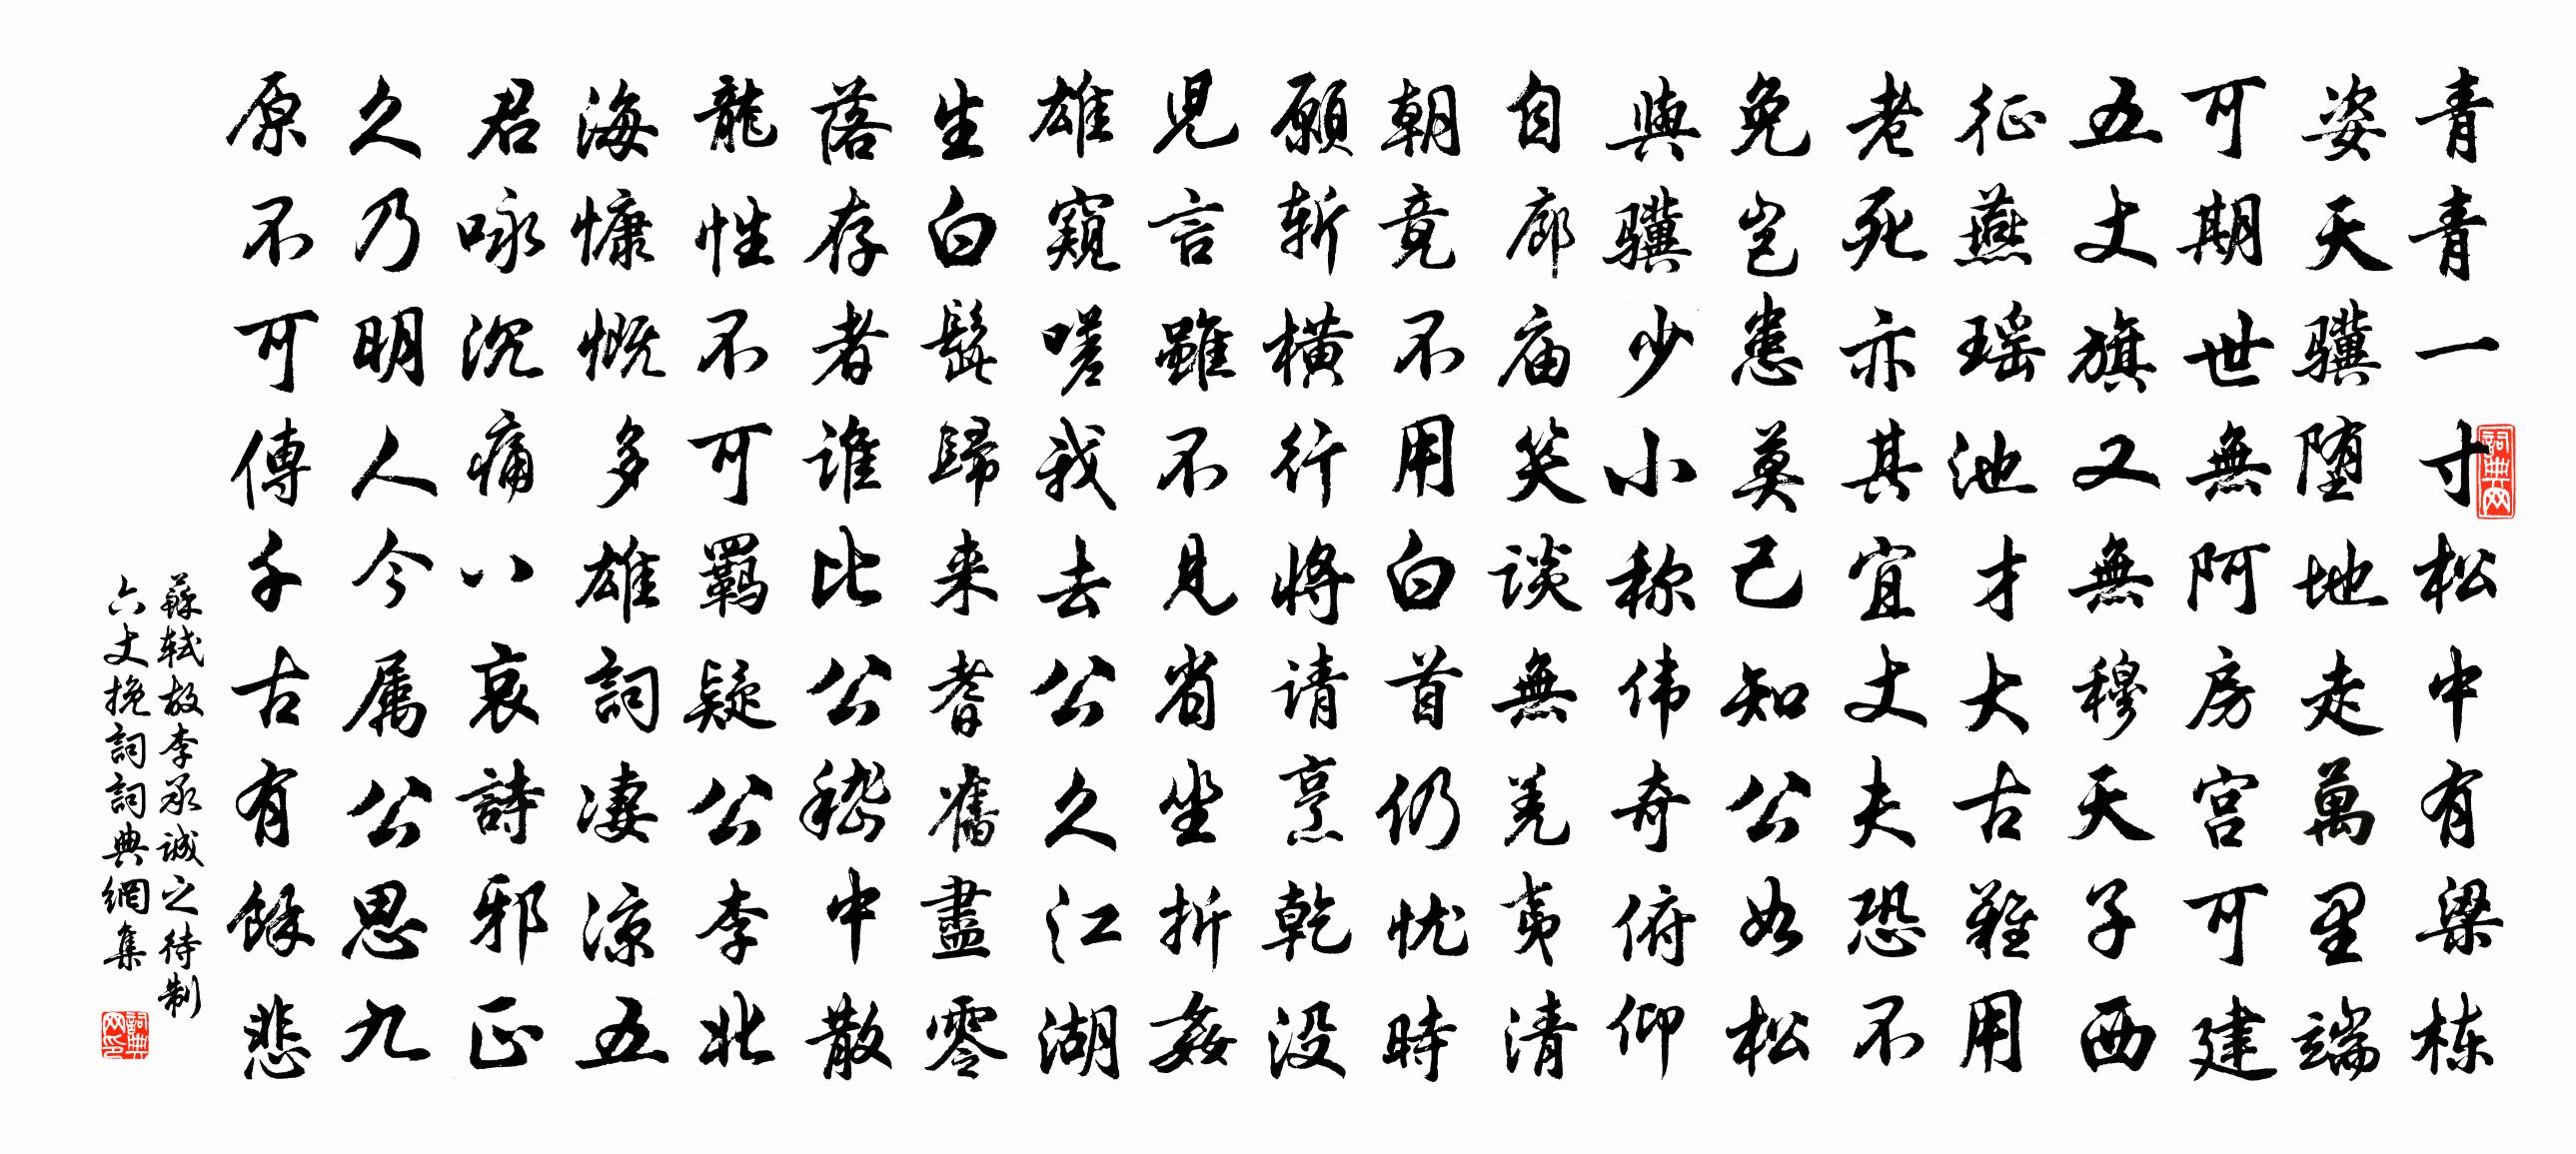 青青一寸松中有梁栋
姿天骥堕地走萬里端
可期世無阿房宫可建
五丈旗又無穆天子西
征燕瑶池才大古難用
老死亦其宜丈夫恐不
免岂患莫己知公如松
與骥少小称伟奇俯仰
自廊庙笑谈無羌夷清
朝竟不用白首仍忧時
願斩横行將请烹乾没
児言雖不見省坐折姦
雄窺嗟我去公久江湖
生白髭歸来耆舊盡零
落存者谁比公嵇中散
龍性不可羈疑公李北
海慷慨多雄詞凄凉五
君咏沉痛八哀詩邪正
久乃明人今属公思九
原不可傳千古有餘悲
蘇轼故李承诚之待制
六丈挽詞詞典網集
詞典网
詞典网印